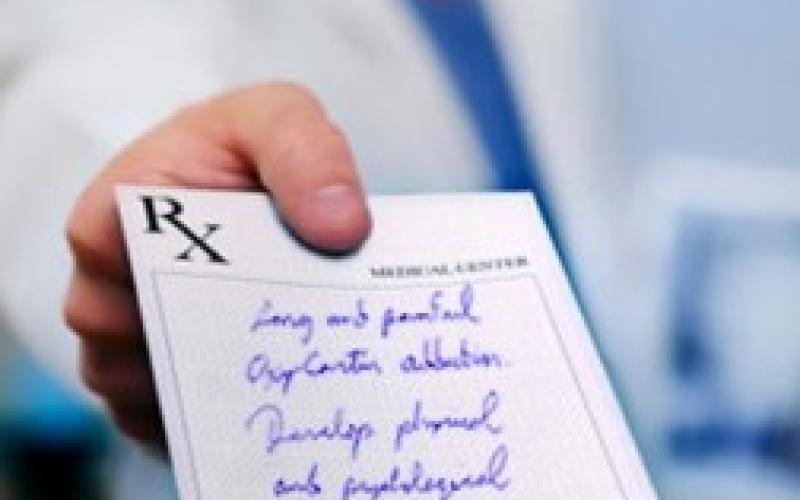 Rx
MEDICAL CENTER
Long and painful
OxyContin addiction.
Develop physical
and psychological